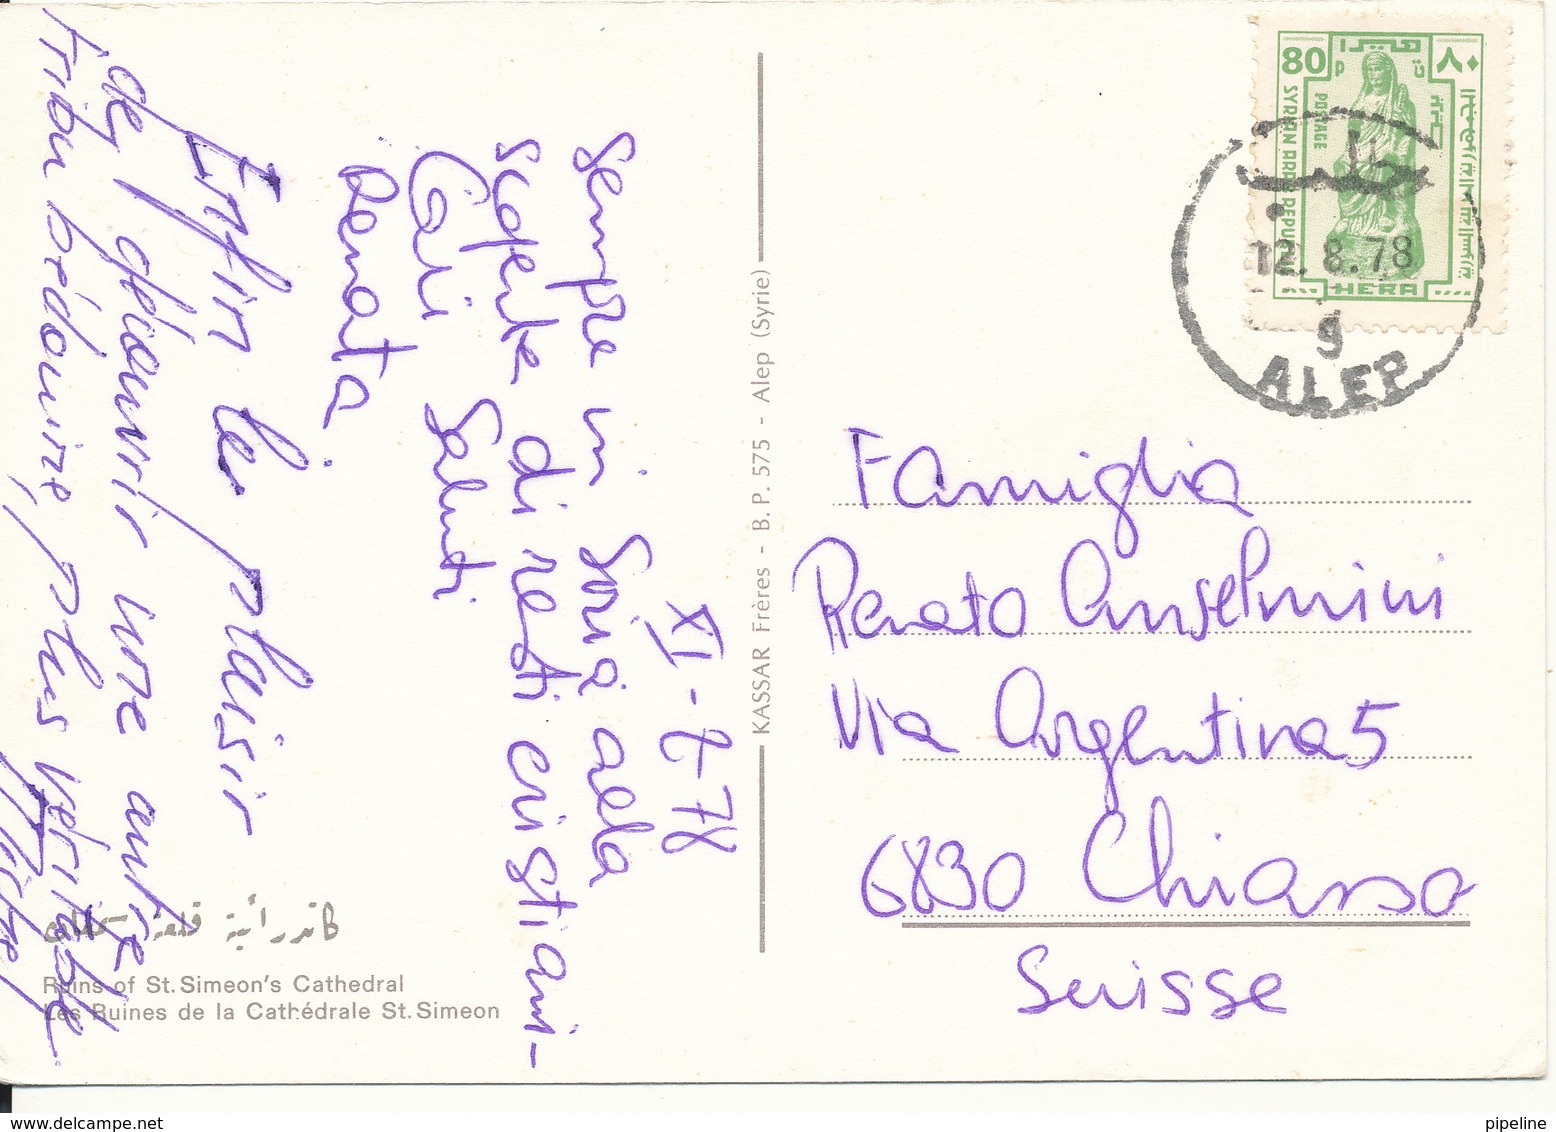 XI-8-78
Sempre in Siria alla
scoperta di resti cristiani-
Cari Saluti
Renata
Enfin le plaisir
de découvrir une autre
tribu bédouine, plus véritable
KASSAR Frères - B. P. 575 - Alep (Syrie)
كاتدرائية قلعة سمعان
Ruins of St. Simeon's Cathedral
Les Ruines de la Cathédrale St. Simeon
80
P
POSTAGE
SYRIAN ARAB REPUBLIC
HERA
٨٠
حلب
12.8.78
9
ALEP
Famiglia
Renato Anselmini
Via Argentina 5
6830 Chiasso
Suisse
pipeline